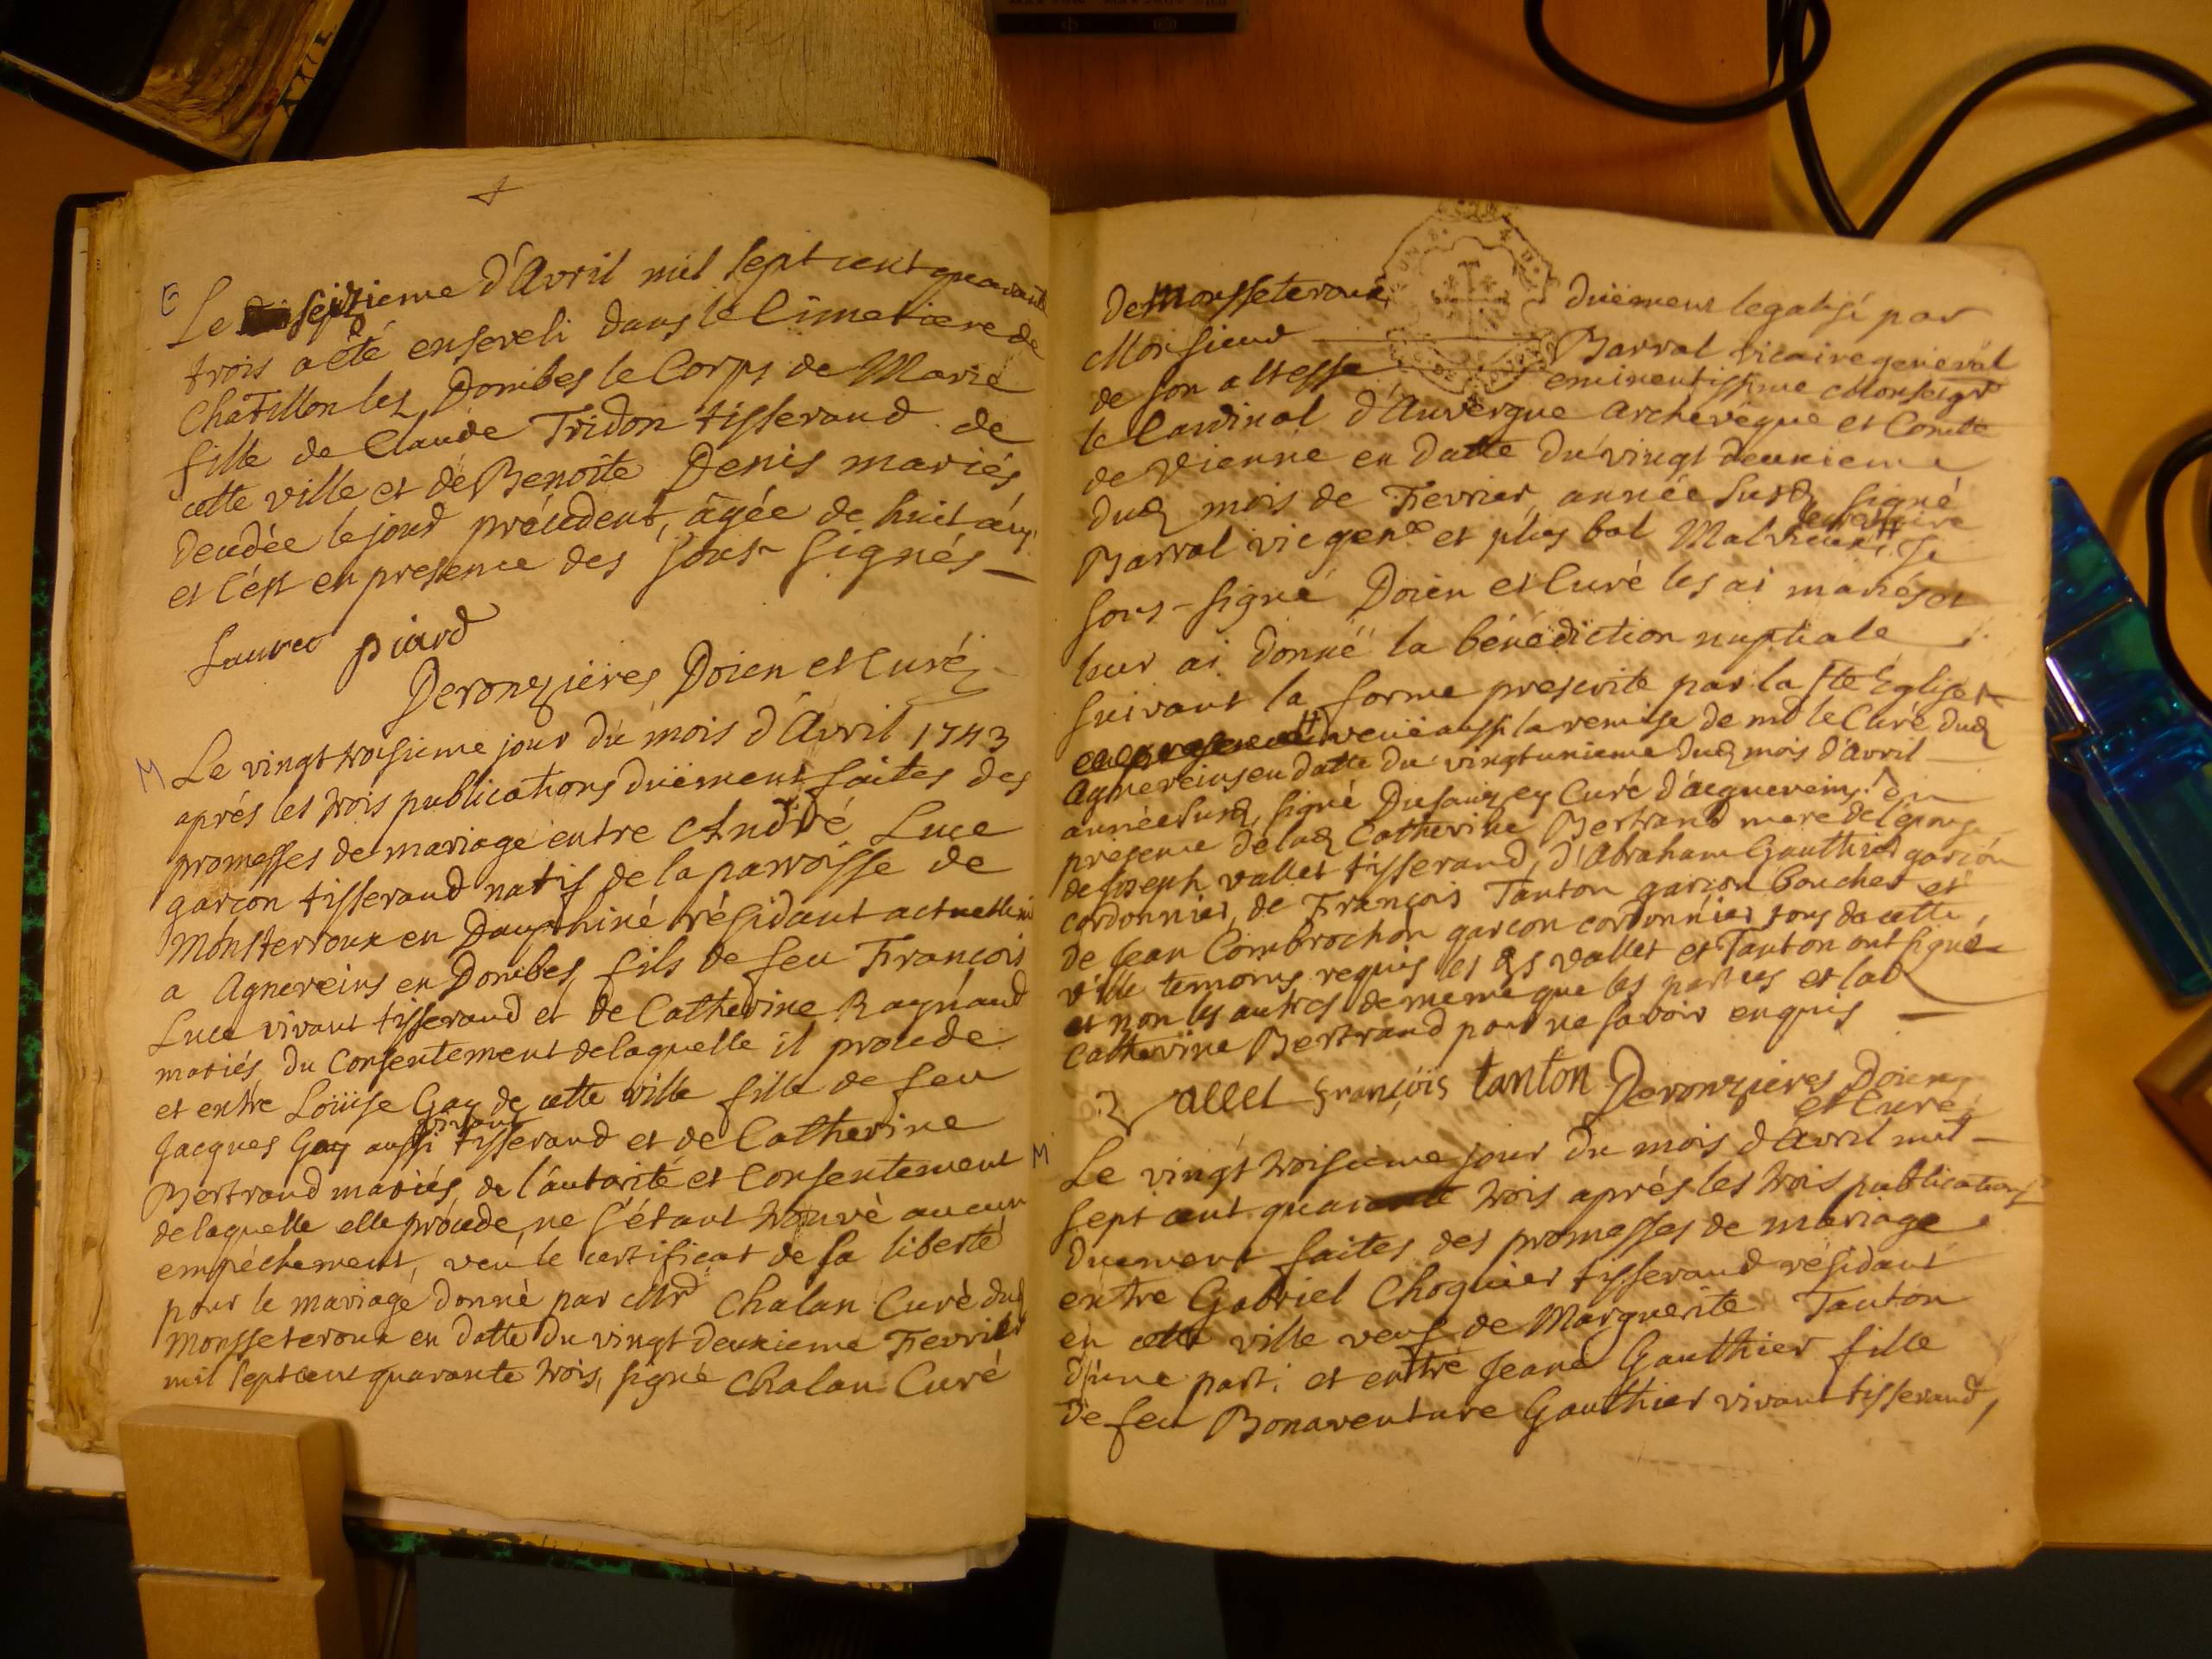 E
Le seizieme d'Avril mil sept cent quarante
trois a été enseveli dans le Cimetiere de
Chatillon les Dombes le Corps de Marie
fille de Claude Tridon tisserand de
cette ville et de Benoîte Denis mariés
decedée le jour précédent, âgée de huit ans
et c'est en presence des sous-signés
piard
Deronzières Doien et Curé
M Le vingt troisieme jour du mois d'Avril 1743
aprés les trois publications düement faites des
promesses de mariage entre André Luce
garçon tisserand natif de la parroisse de
Monsterroux en Dauphiné résidant actuellem
a Agnereins en Dombes, fils de feu François
Luce vivant tisserand et de Catherine Raynaud
mariés du Consentement de laquelle il procede
et entre Loüise Gay de cette ville fille de feu
Jacques Gay aussi vivant tisserand et de Catherine
Bertrand mariés, de l'autorité et Consentement
de laquelle elle procede, ne s'étant trouvé aucun
empéchement, veu le certificat de sa liberté
pour le mariage donné par Mr Chalan Curé dud
Monsseteroux en datte du vingt deuxieme Fevrier
mil sept cent quarante trois, signé Chalan Curé
de Monsseteroux düement legalisé par
Monsieur Barral vicaire general
de son altesse eminentissime Monseigr
le Cardinal d'Auvergne Archevêque et Comte
de Vienne en datte du vingt deuxieme
dud mois de Fevrier, année susd signé
Barral vic gen et plus bas Secretaire Je
sous-signé Doien et Curé les ai mariés et
leur ai donné la bénédiction nuptiale
suivant la forme prescrite par la Ste Eglise
veüe aussi la remise de mr le Curé dud
Agnereins en datte du vingt unieme dud mois d'Avril
année susd, signé Curé d'agnereins. En
présence de lad Catherine Bertrand mere de l'épouse
de Joseph vallet tisserand, d'Abraham Gauthier garçon
cordonnier, de François Tanton garçon boucher et
de Jean Combrochon garçon cordonnier tous de cette
ville temoins requis les ds vallet et Tanton ont signé
et non les autres de meme que les parties et lad
Catherine Bertrand pour ne savoir enquis
vallet françois tanton Deronzières Doien
et Curé
M Le vingt troisieme jour du mois d'Avril mil
sept cent quarante trois aprés les trois publications
duement faites des promesses de mariage
entre Gabriel Choquier tisserand résidant
en cette ville veuf de Marguerite Tanton
d'une part, et entre Jeane Gauthier fille
de feu Bonaventure Gauthier vivant tisserand,